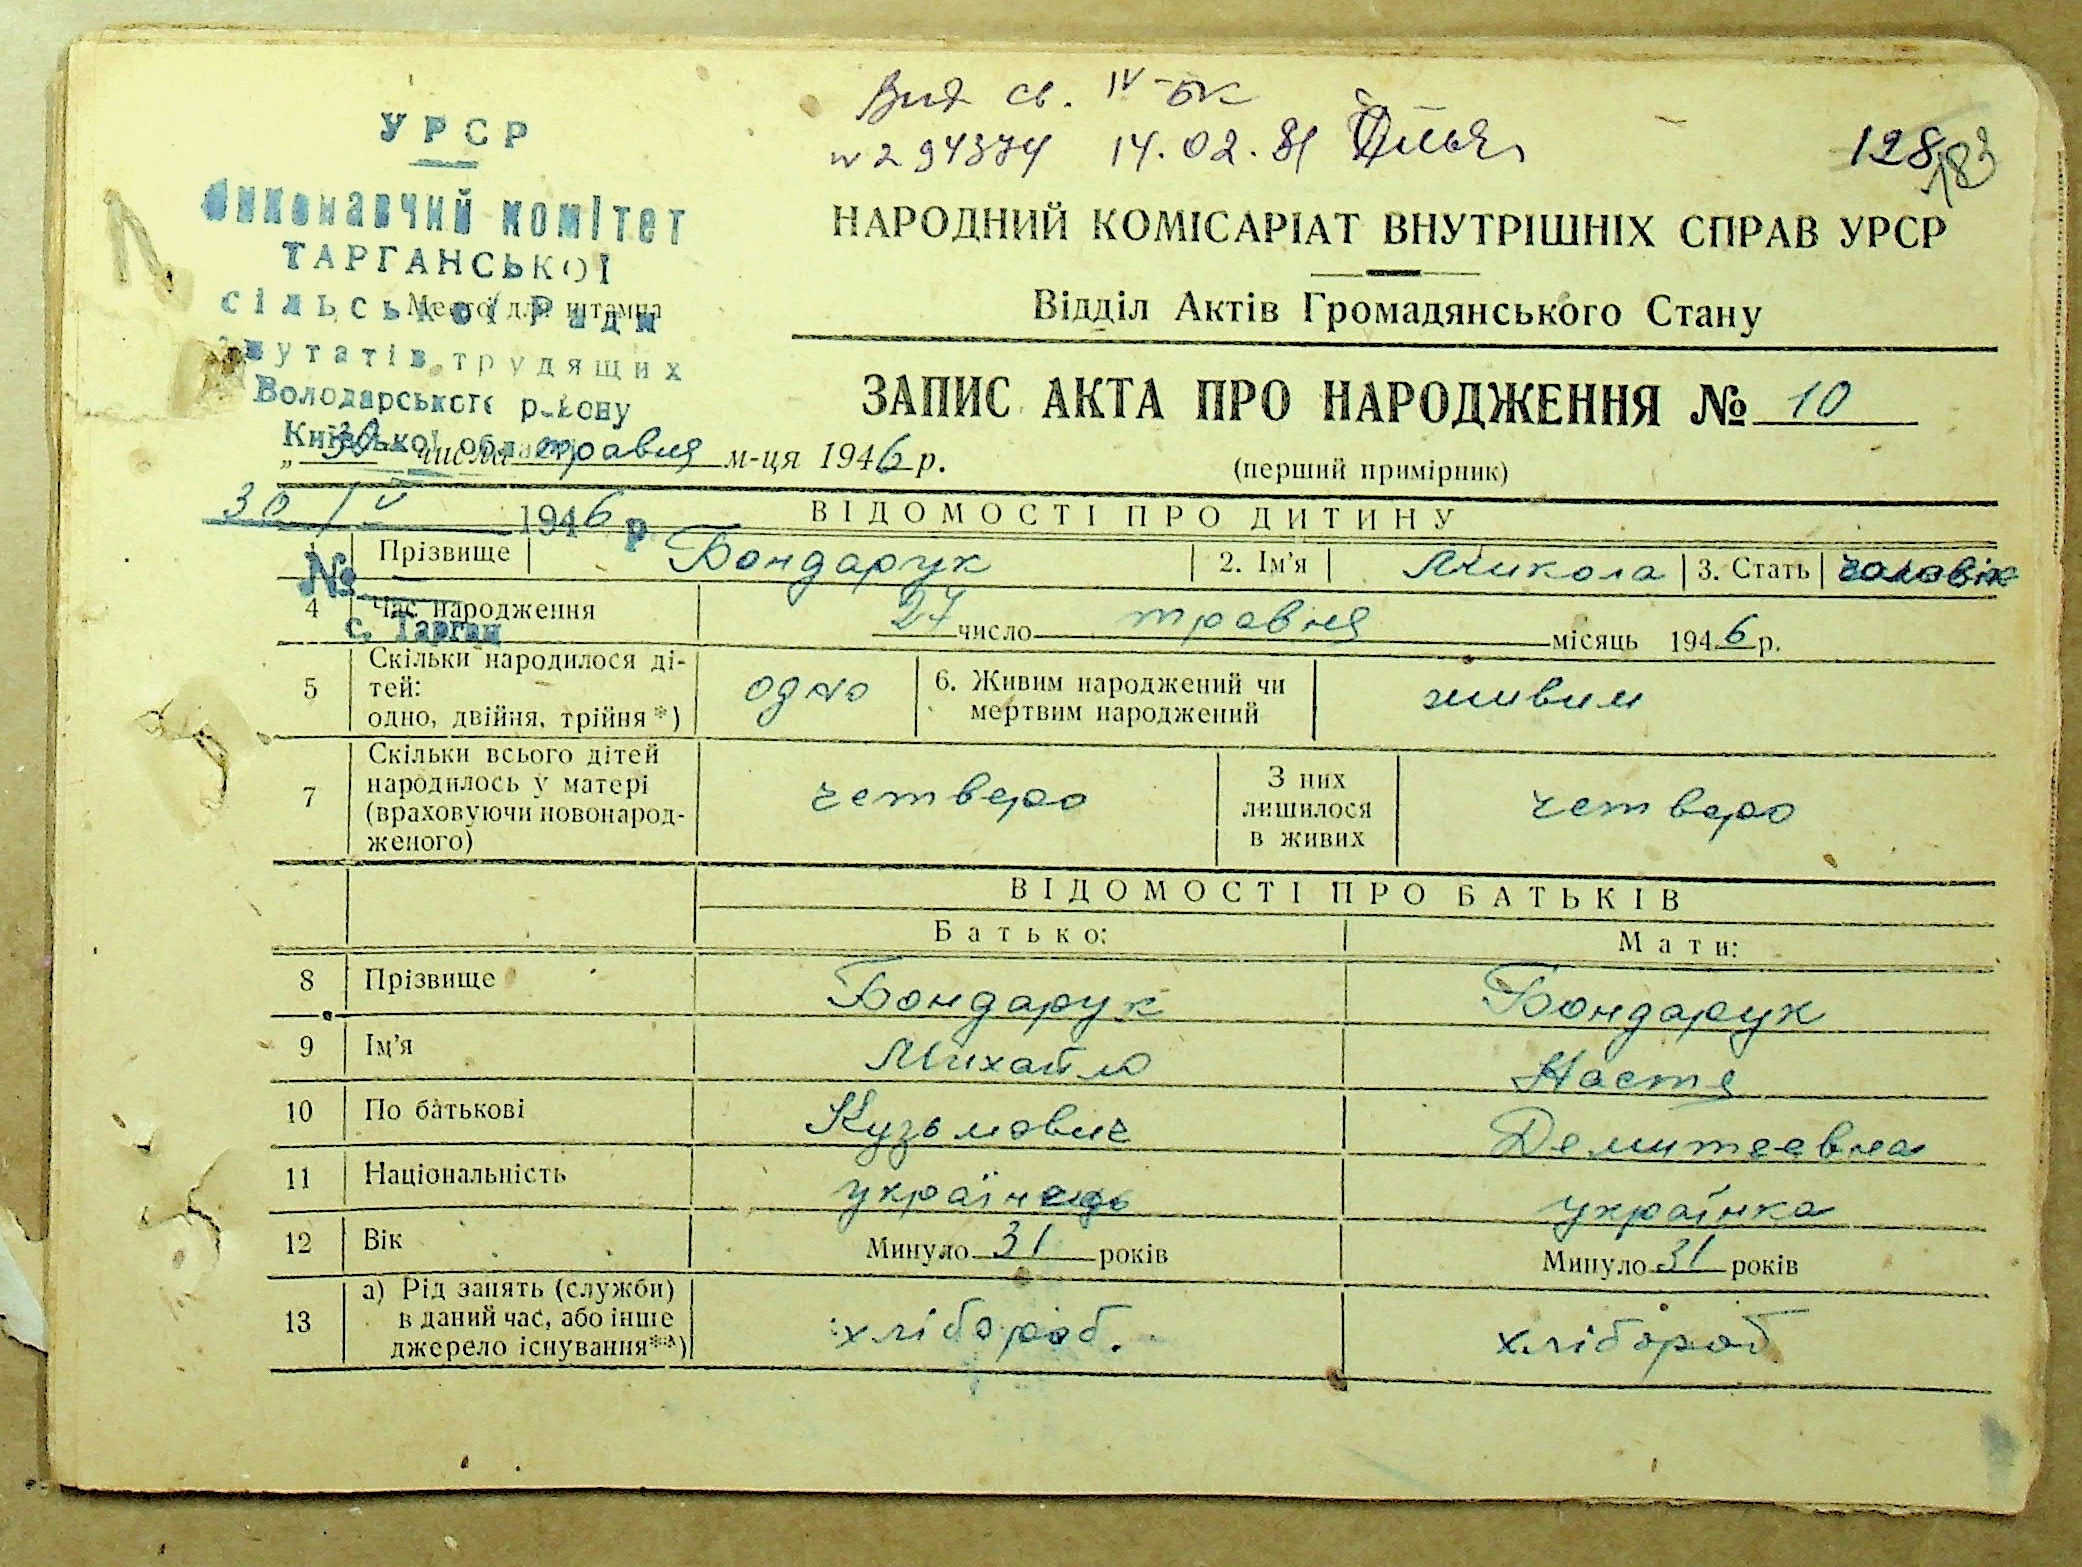 Вид св. IV-БК
№ 294374 14.02.81
128
183
УРСР
виконавчий комітет
ТАРГАНСЬКОЇ
сільської Ради
депутатів трудящих
Володарського району
Київської області
30 IV 1946 р
№
с. Тарган
Место для штампа
НАРОДНИЙ КОМІСАРІАТ ВНУТРІШНІХ СПРАВ УРСР
Відділ Актів Громадянського Стану
ЗАПИС АКТА ПРО НАРОДЖЕННЯ № 10
„30" числа травня м-ця 1946 р.
(перший примірник)
ВІДОМОСТІ ПРО ДИТИНУ
1 Прізвище Бондарук 2. Ім'я Микола 3. Стать чоловік
4 Час народження 27 число травня місяць 1946 р.
5 Скільки народилося ді-
тей:
одно, двійня, трійня*) одно 6. Живим народжений чи
мертвим народжений живим
7 Скільки всього дітей
народилось у матері
(враховуючи новонарод-
женого) четверо З них
лишилося
в живих четверо
ВІДОМОСТІ ПРО БАТЬКІВ
Батько: Мати:
8 Прізвище Бондарук Бондарук
9 Ім'я Михайло Настя
10 По батькові Кузьмович Демитеевна
11 Національність українець українка
12 Вік Минуло 31 років Минуло 31 років
13 а) Рід занять (служби)
в даний час, або інше
джерело існування**) хлібороб. хлібороб